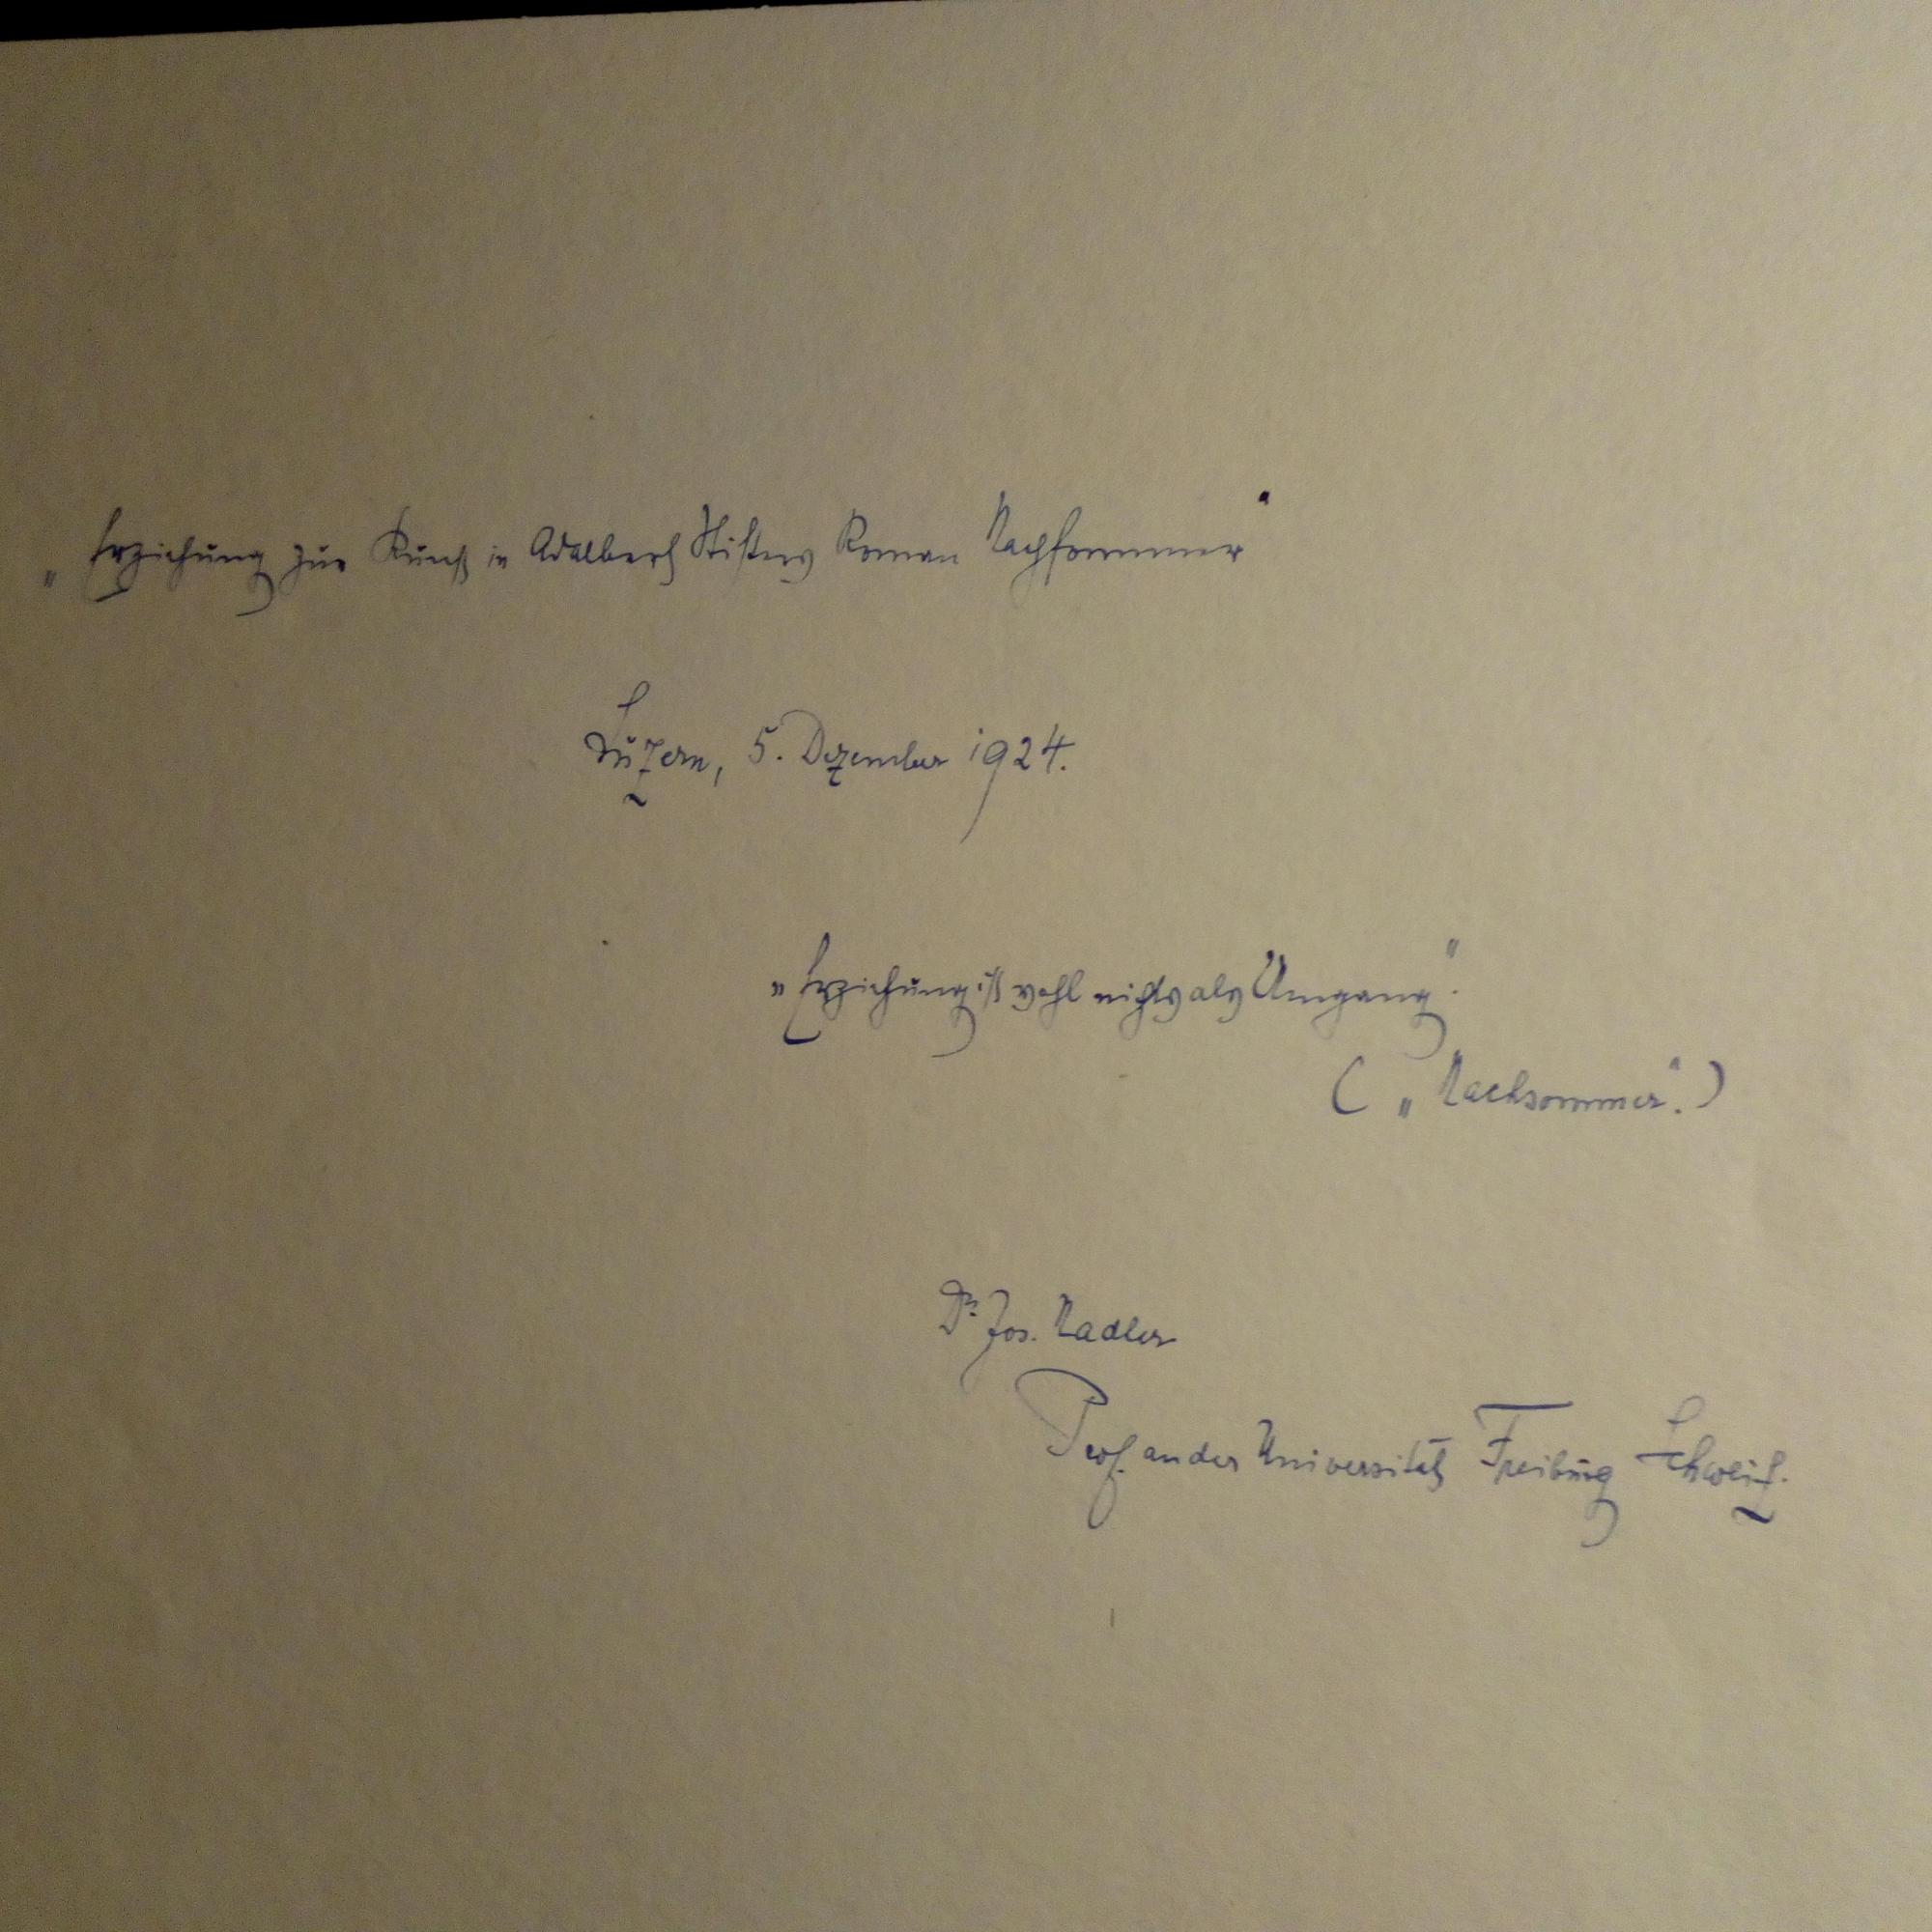 „Erziehung zur Kunst in Adalbert Stifters Roman Nachsommer"
Luzern, 5. Dezember 1924.
„Erziehung ist wohl nichts als Umgang".
(„Nachsommer".)
Dr. Jos. Nadler
Prof. an der Universität Freiburg Schweiz.